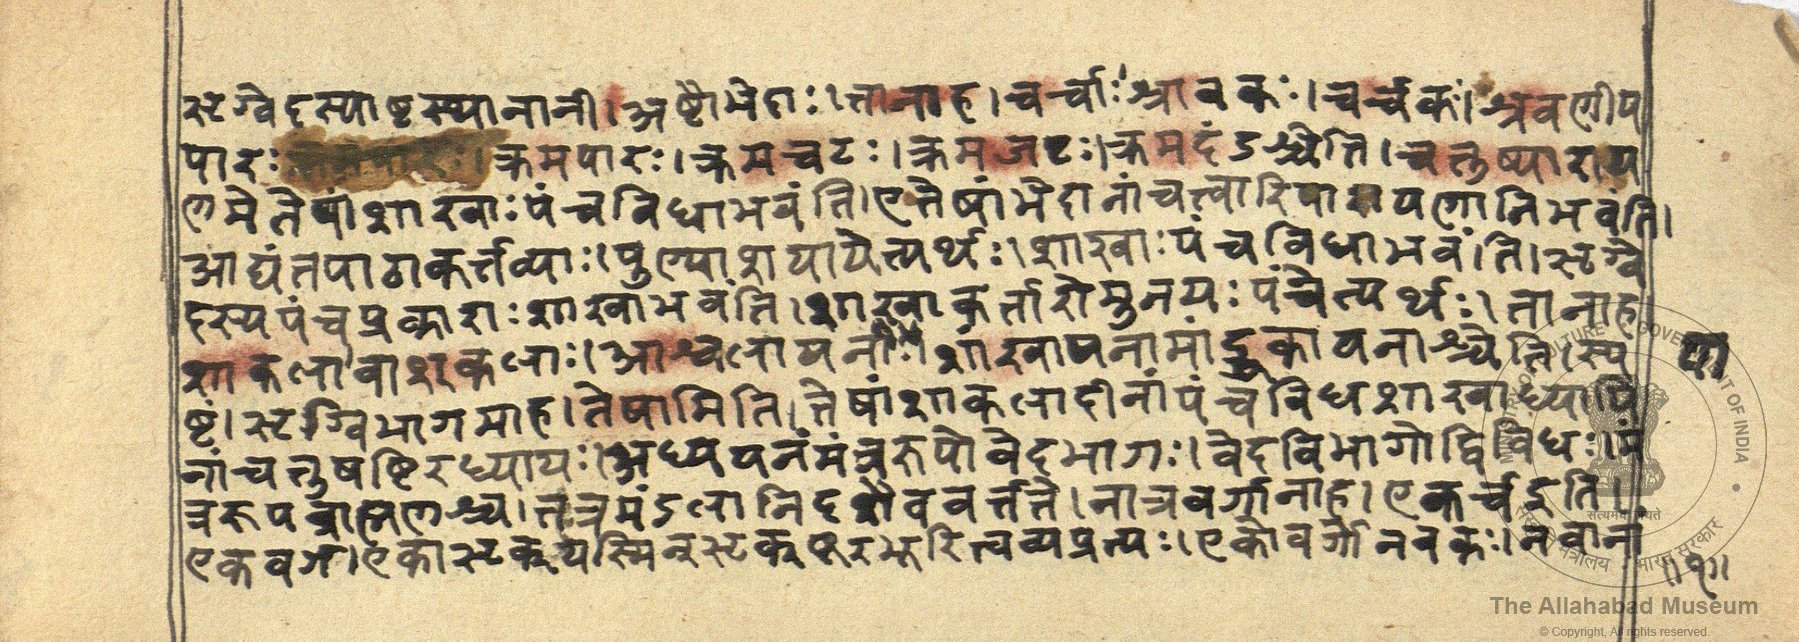 ऋग्वेदस्याष्टस्थानानी। अष्टौ भेदाः। तानाह। चर्चाः श्रावकः। चर्चकः। श्रवणीय
पारः क्रमपारः। क्रमचटः। क्रमजटः। क्रमदंडश्चेति। चतुष्पाराय
ण मेतेषां शाखाः पंचविधाभवंति। एतेषां भेदानां चत्वारि पारायणानि भवंति।
आद्यंतपाठाकर्त्तव्याः। पुण्याशयायेत्यर्थः। शाखाः पंचविधाभवंति। ऋग्वे
दस्य पंचप्रकाराः शाखाभवंति। शाखाकर्त्तारोमुनयः पंचेत्यर्थः। तानाह
शाकलावाशकलाः। आश्वलायनाः। शांखायनामांडुकायनाश्चेति। स्प
ष्टं। ऋग्विभागमाह। तेषामिति। तेषांशाकलादीनांपंचविधशाखाध्यायि
नांचतुषष्टिरध्यायः। अध्ययनंमंत्ररूपोवेदभागः। वेदविभागोद्विविधः। मं
त्ररूपब्राह्मणश्च। तत्रमंडलानिदशैववर्त्तते। नात्रवर्गानाह। एकर्चइति।
एकवर्ग। एकाऋक् यस्मिन्ऋक् प्रत्यः। एकोवर्गोनवकः। नवान
या
॥१॥
MINISTRY OF CULTURE GOVERNMENT OF INDIA
सत्यमेव जयते
संस्कृति मंत्रालय • भारत सरकार
The Allahabad Museum
© Copyright, All rights reserved.